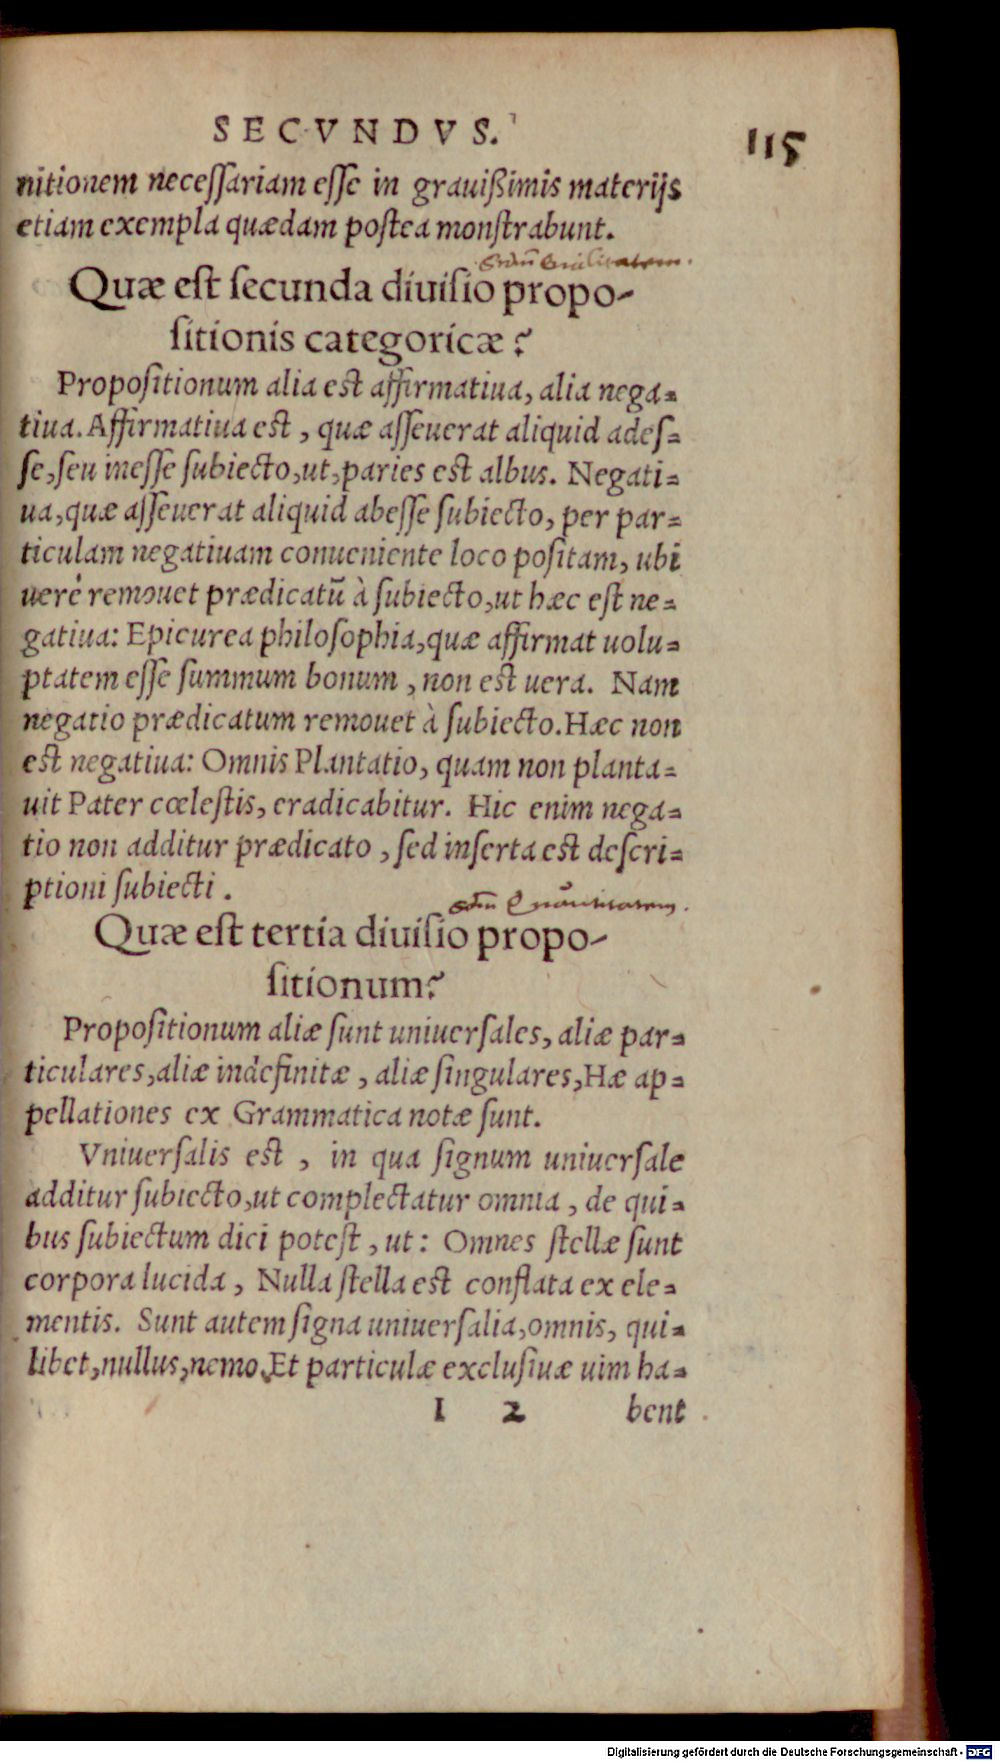 SECVNDVS. 115
nitionem neceſſariam eſſe in grauißimis materijs
etiam exempla quædam poſtea monſtrabunt.
Quæ eſt ſecunda diuiſio propo-
ſitionis categoricæ?
Propoſitionum alia eſt affirmatiua, alia nega-
tiua. Affirmatiua eſt, quæ aſſeuerat aliquid adeſ-
ſe, ſeu ineſſe ſubiecto, ut, paries eſt albus. Negati-
ua, quæ aſſeuerat aliquid abeſſe ſubiecto, per par-
ticulam negatiuam conueniente loco poſitam, ubi
uerè remouet prædicatū à ſubiecto, ut hæc eſt ne-
gatiua: Epicurea philoſophia, quæ affirmat uolu-
ptatem eſſe ſummum bonum, non eſt uera. Nam
negatio prædicatum remouet à ſubiecto. Hæc non
eſt negatiua: Omnis Plantatio, quam non planta-
uit Pater cœleſtis, eradicabitur. Hic enim nega-
tio non additur prædicato, ſed inſerta eſt deſcri-
ptioni ſubiecti.
Quantitatem.
Quæ eſt tertia diuiſio propo-
ſitionum?
Propoſitionum aliæ ſunt uniuerſales, aliæ par-
ticulares, aliæ indefinitæ, aliæ ſingulares, Hæ ap-
pellationes ex Grammatica notæ ſunt.
Vniuerſalis eſt, in qua ſignum uniuerſale
additur ſubiecto, ut complectatur omnia, de qui-
bus ſubiectum dici poteſt, ut: Omnes ſtellæ ſunt
corpora lucida, Nulla ſtella eſt conflata ex ele-
mentis. Sunt autem ſigna uniuerſalia, omnis, qui-
libet, nullus, nemo. Et particulæ excluſiuæ uim ha-
I 2 bent
Digitalisierung gefördert durch die Deutsche Forschungsgemeinschaft - DFG